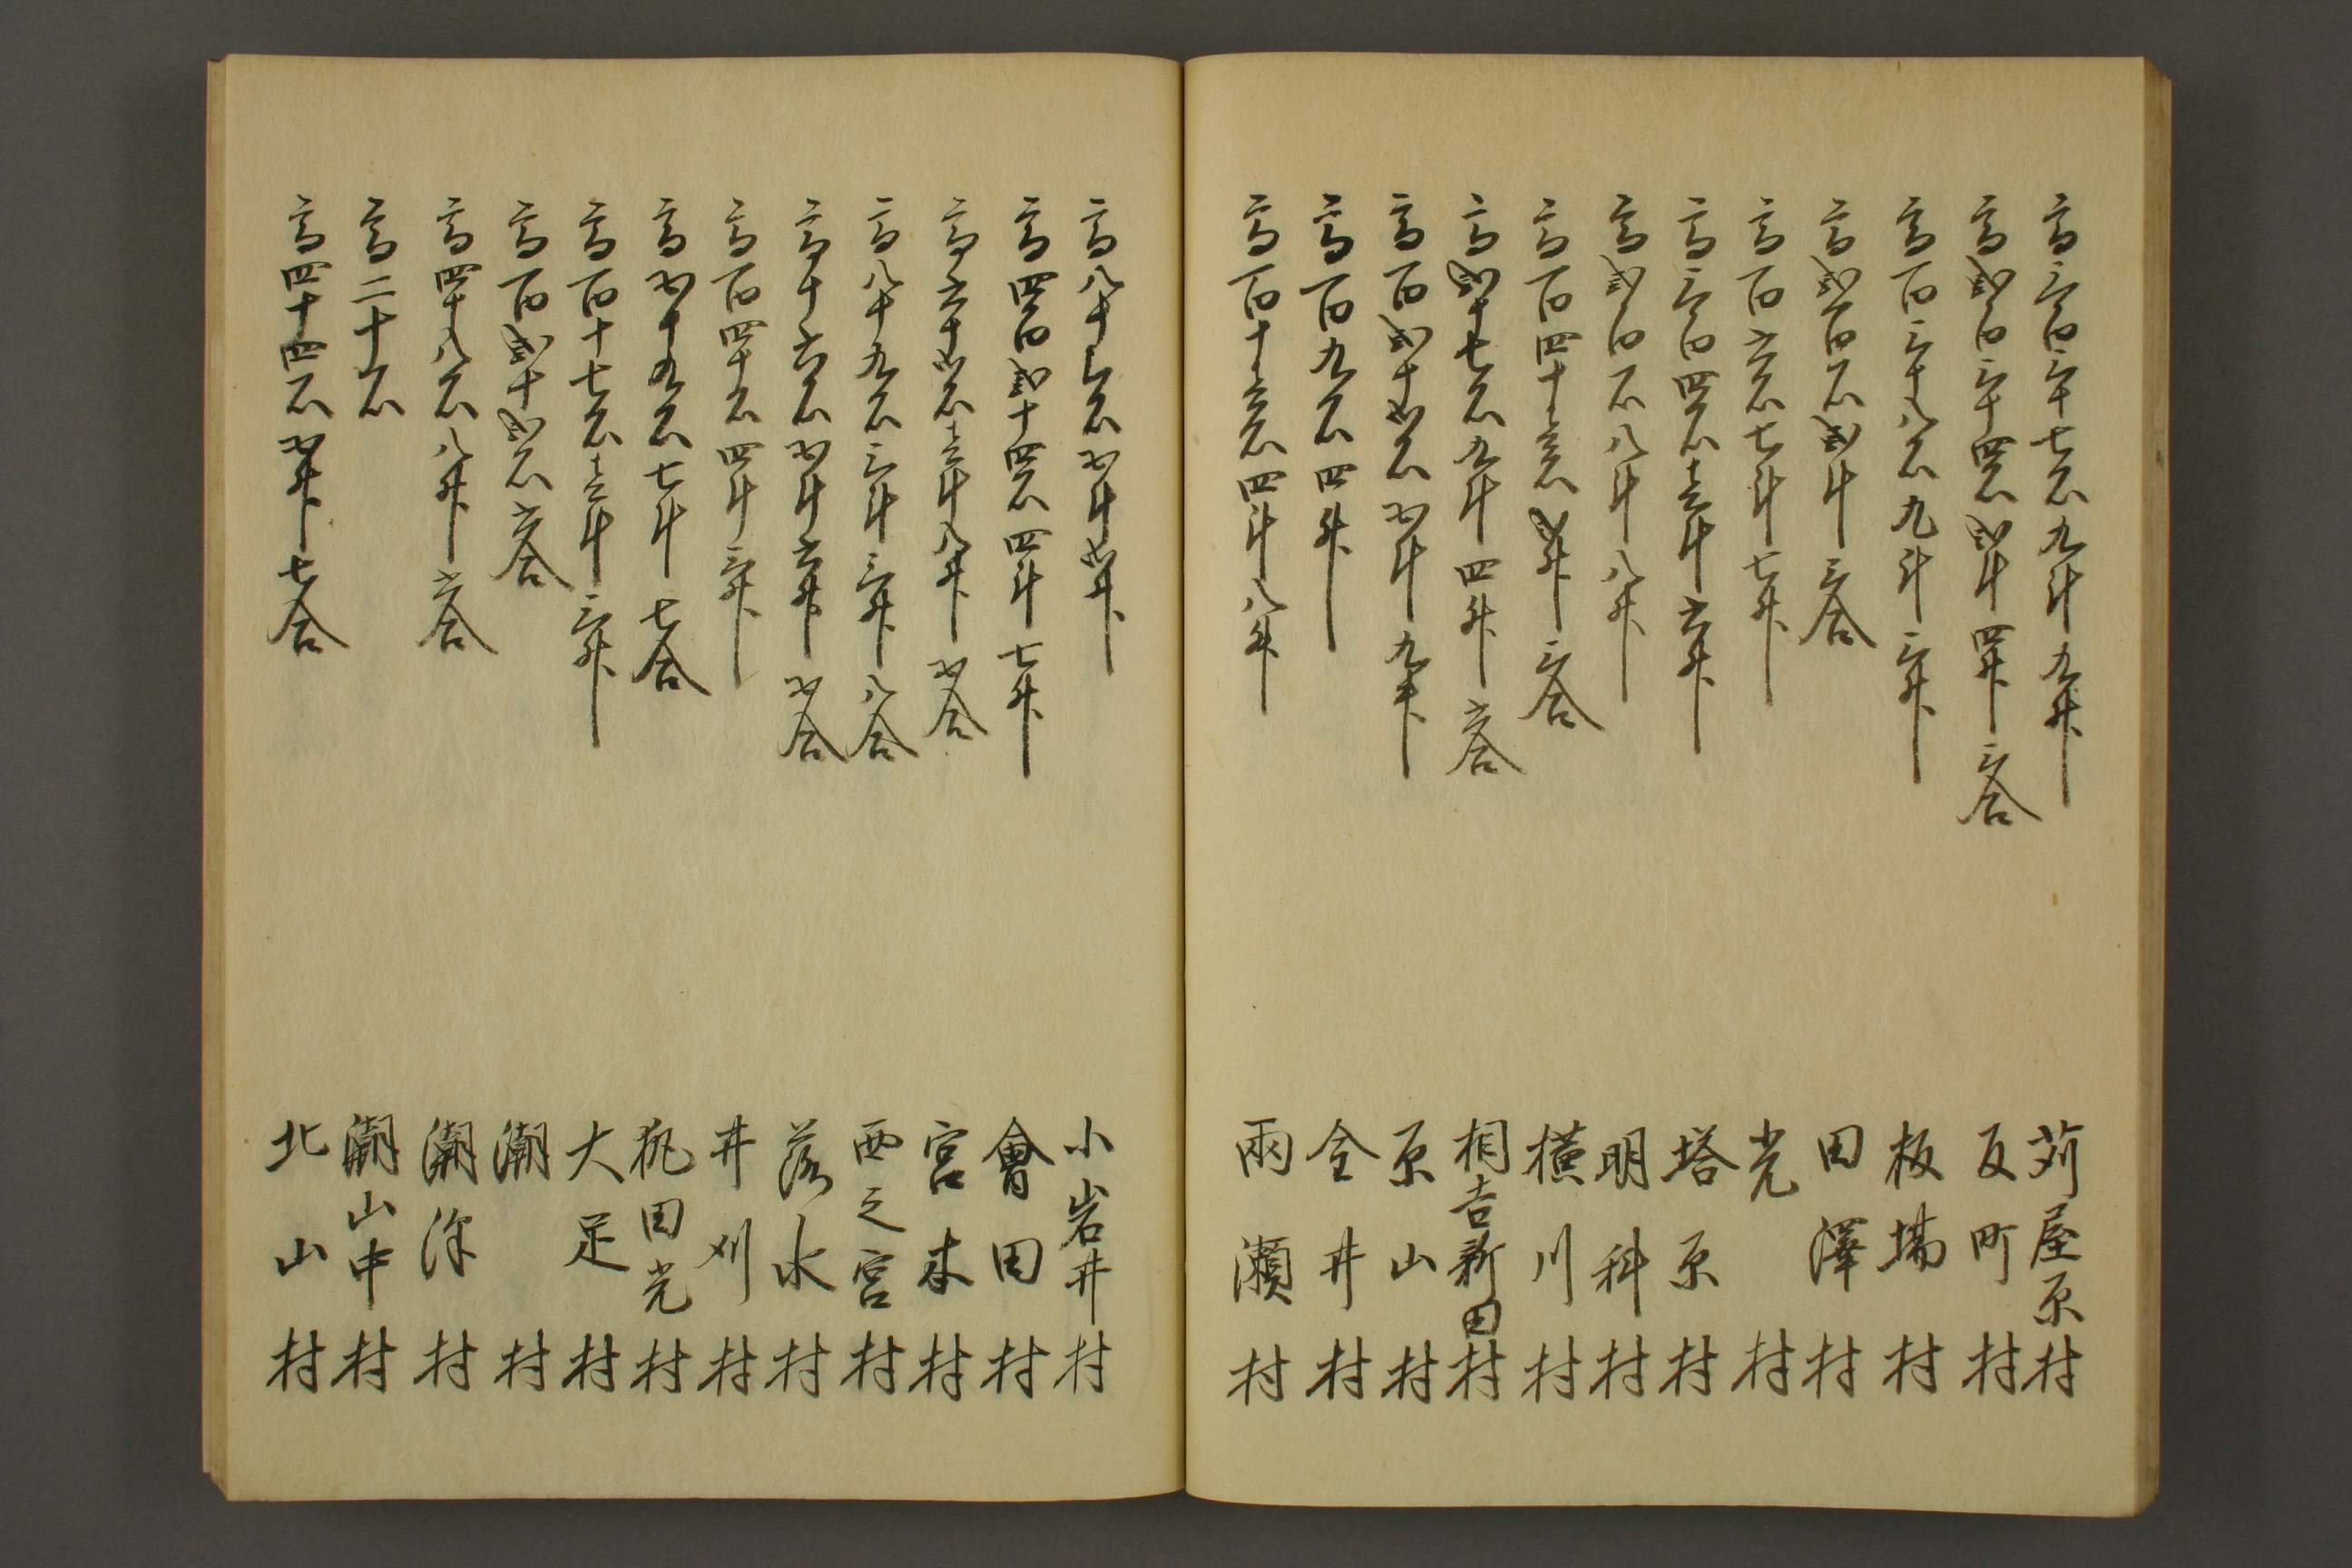 高三百三十七石九斗九升 苅屋原村
高弐百三十四石弐斗四升三合 反町村
高百三十八石九斗三升 板場村
高弐百石弐斗三合 田澤村
高百六石七斗七升 光村
高三百四石壱斗六升 塔原村
高弐百石八斗八升 明科村
高百四十壱石弐升三合 横川村
高弐十七石九斗四升六合 相吉新田村
高百弐十弐石五斗九升 原山村
高百九石四升 全井村
高百十壱石四斗八升 兩瀬村
高八十石五斗弐升 小岩井村
高四百弐十四石四斗七升 會田村
高六十弐石壱斗八升五合 宮本村
高八十九石三斗三升八合 西之宮村
高十六石五斗六升五合 落水村
高百四十石四斗三升 井刈村
高五十九石七斗七合 狐田光村
高百十七石壱斗三升 大足村
高百弐十弐石六合 潮村
高四十八石八升六合 潮深村
高二十石 潮山中村
高四十四石五升七合 北山村